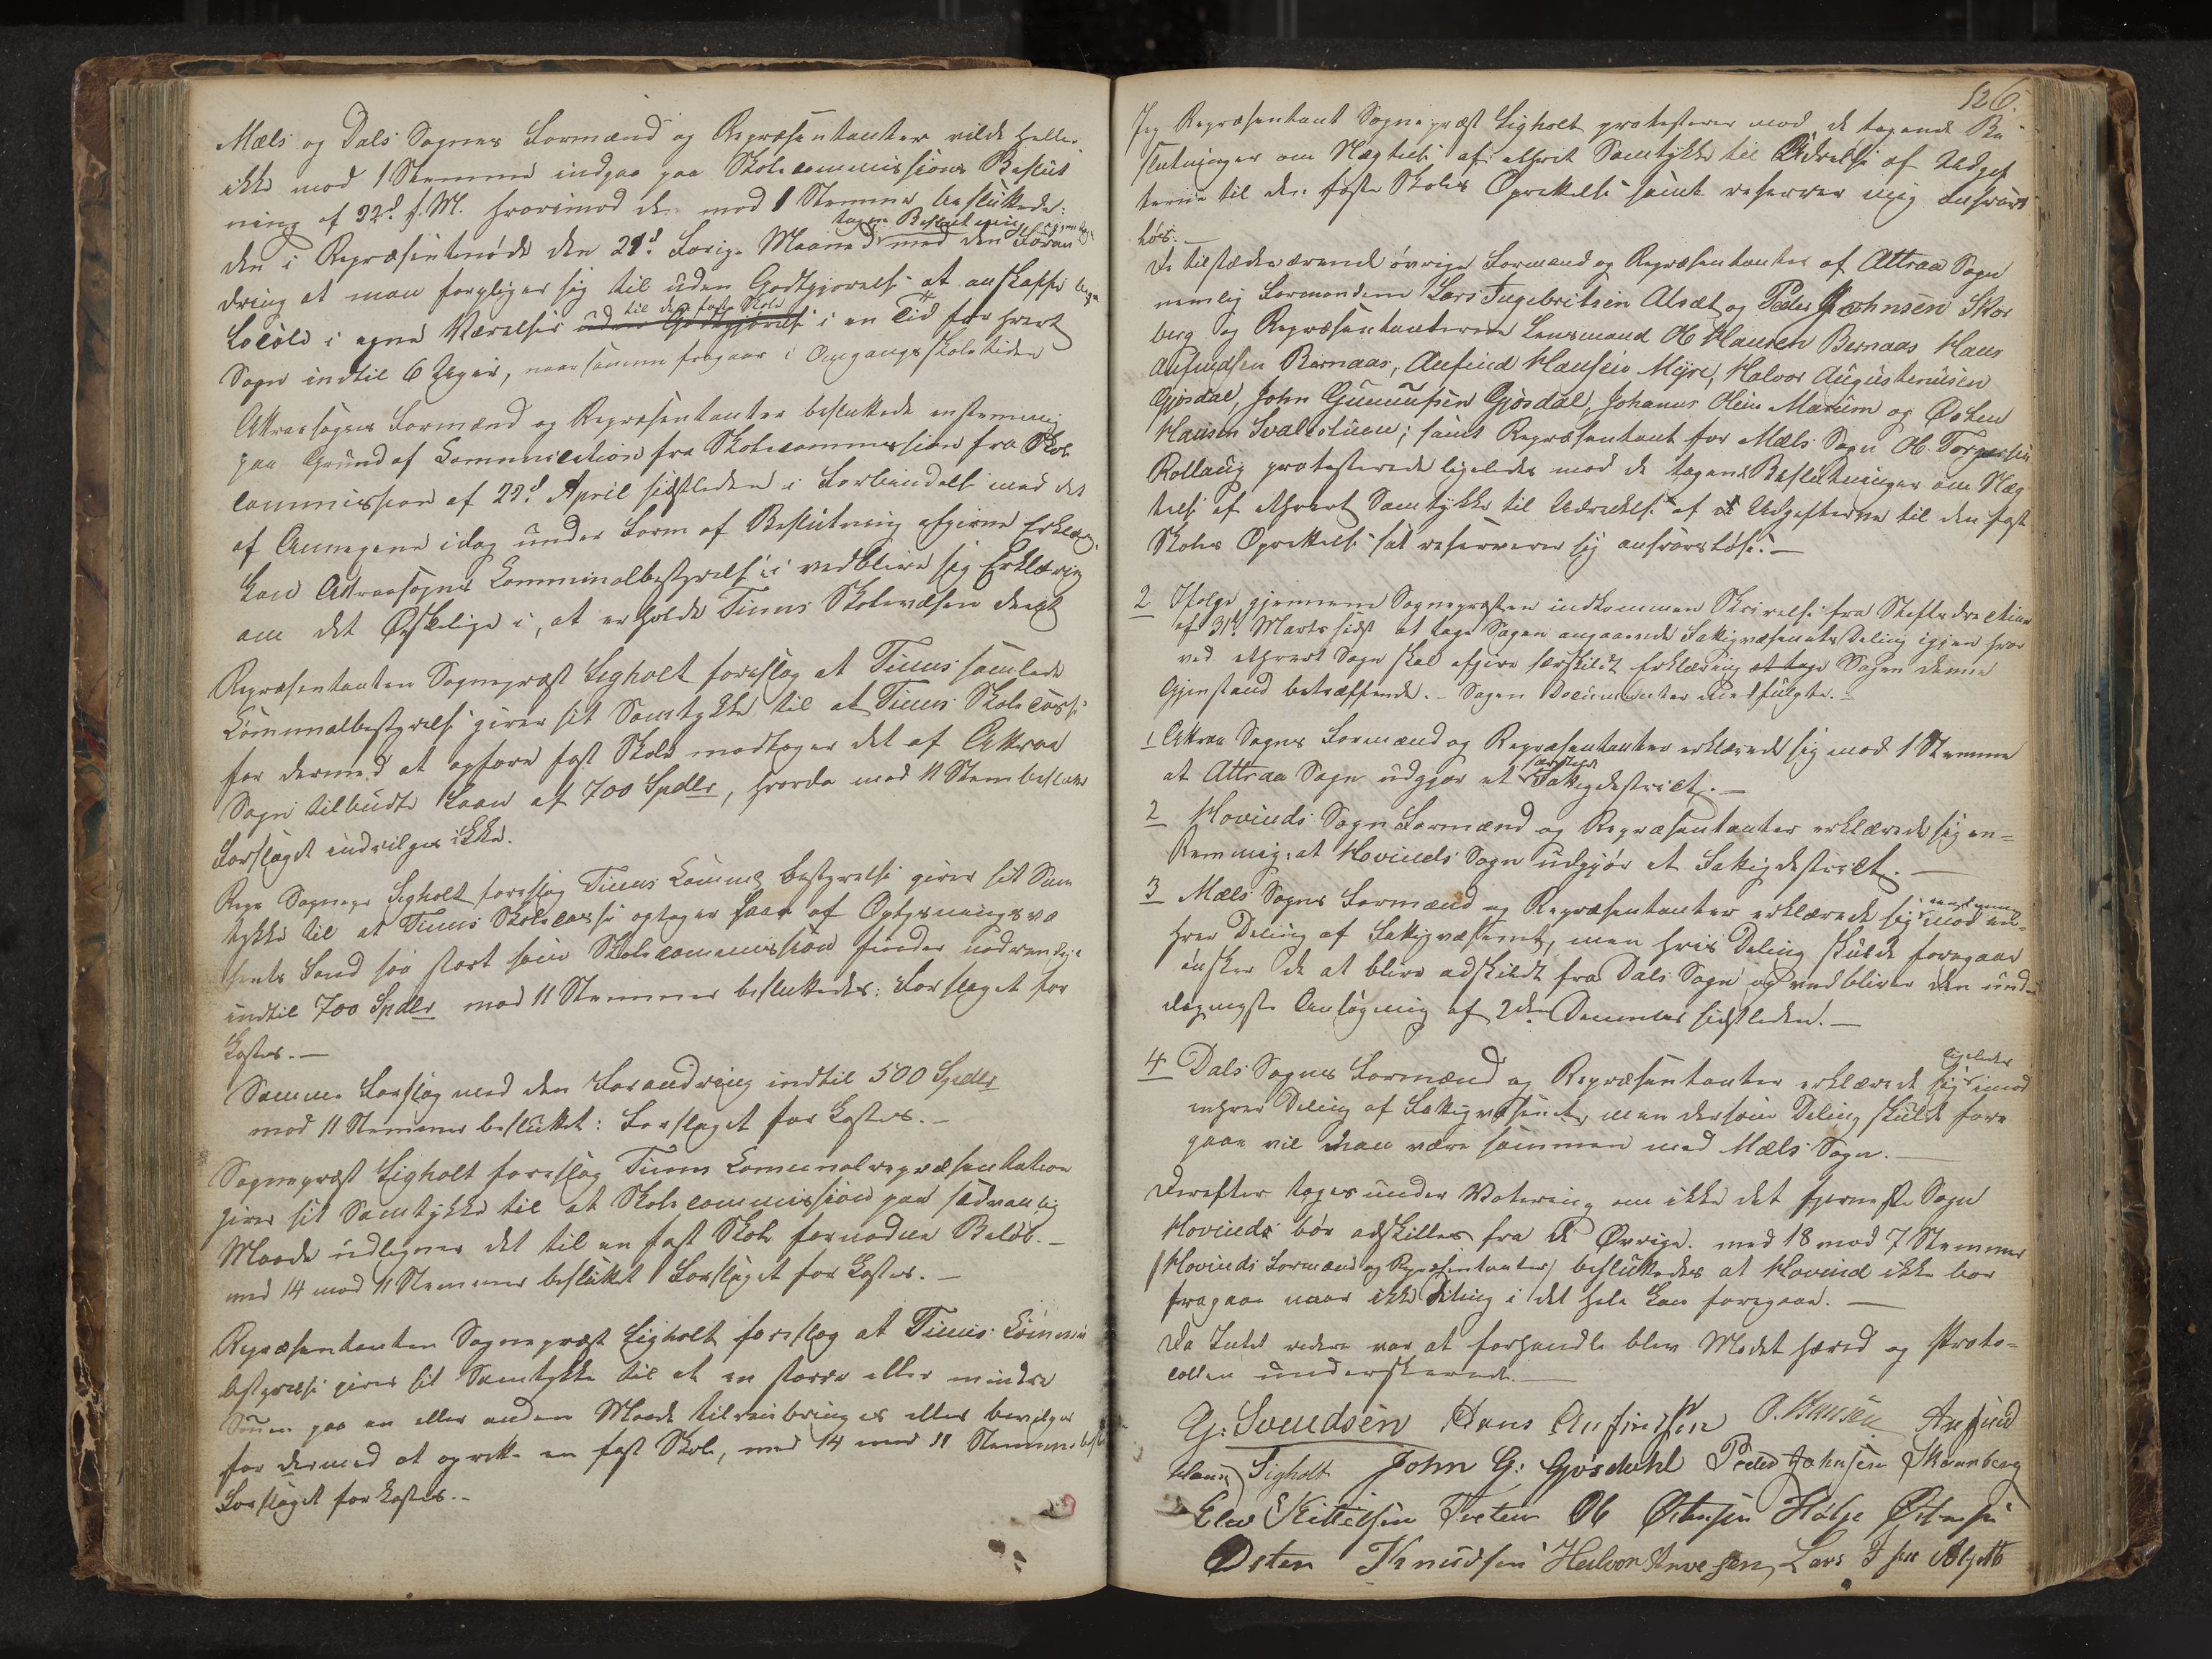 Mæls og Dals Sognes Formænd og Repræsentanter vilde heller
ikke mod 1 Stemme indgaa paa Skolecommissions Beslut
ning af 22d f. M. hvorimod de mod 1 Stemme besluttede:
tagen Beslutning
den i Repræsentmøde den 21d forige Maaned med den Foran
dring at man forpligter sig til uden Godtgjørelse at anskaffe
til den faste Skole
Locale i egne Værelser uden Godtgjørelse i en Tid for hvert
Sogn indtil 6 Uger, naar samme fragaar i Omgangsskoletiden
Attraasognes Formænd og Repræsentanter besluttede enstemmig
paa Grund af Communication fra Skolecommission fra Skole
commission af 22d April sidstleden i Forbindelse med det
af Annexerne idag under Form af Beslutning afgivne Erklæring
kan Attraasognes Communalbestyrelse vedblive sig Erklæring
om det Ønskelige i, at erholde Tinns Skolevæsen deelt
Repræsentanten Sognepræst Sigholt foreslog at Tinns samlede
Communalbestyrelse giver sit Samtykke til at Tinns Skolecasse
for dermed at opføre fast Skole modtager det af Attraa
Sogn tilbudte Laan af 700 Spdlr, hvorda mod 11 Stem besluttet
Forslaget indvilges ikke.
Repr Sognepr Sigholt foreslog Tinns Commu bestyrelse giver sit Sam
tykke til at Tinns Skolecasse optager Laan af Oplysningsvæ
sents Fond saa stort som Skolecommission finder nødvendig
indtil 700 Spdlr mod 11 Stemmer besluttedes: Forslaget for
kastes. —
Samme Forslag med den Forandring indtil 500 Spdlr
mod 11 Stemmer besluttet: Forslaget forkastes. —
Sognepræst Sigholt foreslog Tinns Comunalrepræsentation
giver sit Samtykke til at Skolecommission paa sædvanlig
Maade udligner det til en fast Skole fornødne Beløb. —
med 14 mod 11 Stemmer besluttet Forslaget forkastes. —
Repræsentanten Sognepræst Sigholt foreslog at Tinns Commun
bestyrelse giver sit Samtykke til at en større eller mindre
Sum paa en eller anden Maade tilveiebringes eller bevilges
for dermed at oprette en fast Skole, med 14 mod 11 Stemmer
Forslaget forkastes. —
126.
Jeg Repræsentant Sognepræst Sigholt protesterer mod de tagende Be
slutninger om Nægtelse af ethvert Samtykke til Udredelse af Udgif
terne til den faste Skoles Oprettelse samt reserverer mig ansvars
løs. —
De tilstedeværende øvrige Formænd og Repræsentanter af Attraa Sogn
nemlig Formændene Lars Ingebritsen Alsæt og Peder Johnsen Skor
berg og Repræsentanterne Lensmand O Hansen Bernaas Hans
Anfindsen Bernaas, Anfind Hansen Myre, Halvor Augustinusen
Gjøsdal, John Gunnufsen Gjøsdal, Johannes Olsen Marum og Østen
Hansen Svalestuen; samt Repræsentant for Mæls Sogn Ol Torgersen
Rollaug protesterede ligeledes mod de tagende Beslutninger om Næg
telse af ethvert Samtykke til Udredelse af Udgifterne til den fast
Skoles Oprettelse samt reserverer sig ansvarsløse. —
2 Ifølge gjennem Sognepræsten indkommen Skrivelse fra Stiftsdirectionen
af 31te Marts sidst at tage Sagen angaaende Fattigvæsenets Deling igjen for
ved ethvert Sogn skal afgive særskildt Erklæring at tage Sagen denne
Gjenstand betræffende. — Sagens Documenter medfulgte. —
1 Attraa Sognes Formænd og Repræsentanter erklærede sig mod 1 Stemme
særskilt
at Attraa Sogn udgjør et Fattigdistrict. —
2 Hovinds Sogn Formænd og Repræsentanter erklærede sig en=
stemmig: at Hovinds Sogn udgjør et Fattigdistrict. —
3 Mæls Sognes Formænd og Repræsentanter erklærede sig mod en=
hver Deling af Fattigvæsenet, men hvis Deling skulde foregaae
ønsker de at blive adskildt fra Dals Sogn og vedbliver den und
dagingste Ansøgning af 2den Decemb sidstleden. —
ligeledes
4 Dals Sognes Formænd og Repræsentanter erklærede sig imod
enhver Deling af Fattigvæsenet, men dersom Deling skulde fore
gaae vil man være sammen med Mæls Sogn. —
Derefter toges under Votering om ikke det fjerneste Sogn
Hovinds bør adskilles fra de Øvrige. med 18 mod 7 Stemmer
(Hovinds Formænd og Repræsentanter) besluttedes at Hovind ikke bør
fragaae naar ikke Deling i det hele kan foregaae. —
Da Intet videre var at forhandle blev Mødet hævet og Proto=
collen underskrevet. —
G: Svendsen Hans Anfindsen O. Hansen Anfind
Hans Sigholt John G: Gjøsdahl Peder Johnsen Skaarberg
Elev Kittilsen Tveten Ol Østensen Hølje Østensen
Østen Knudsen Halvor Anve sen, Lars I sen Alsett